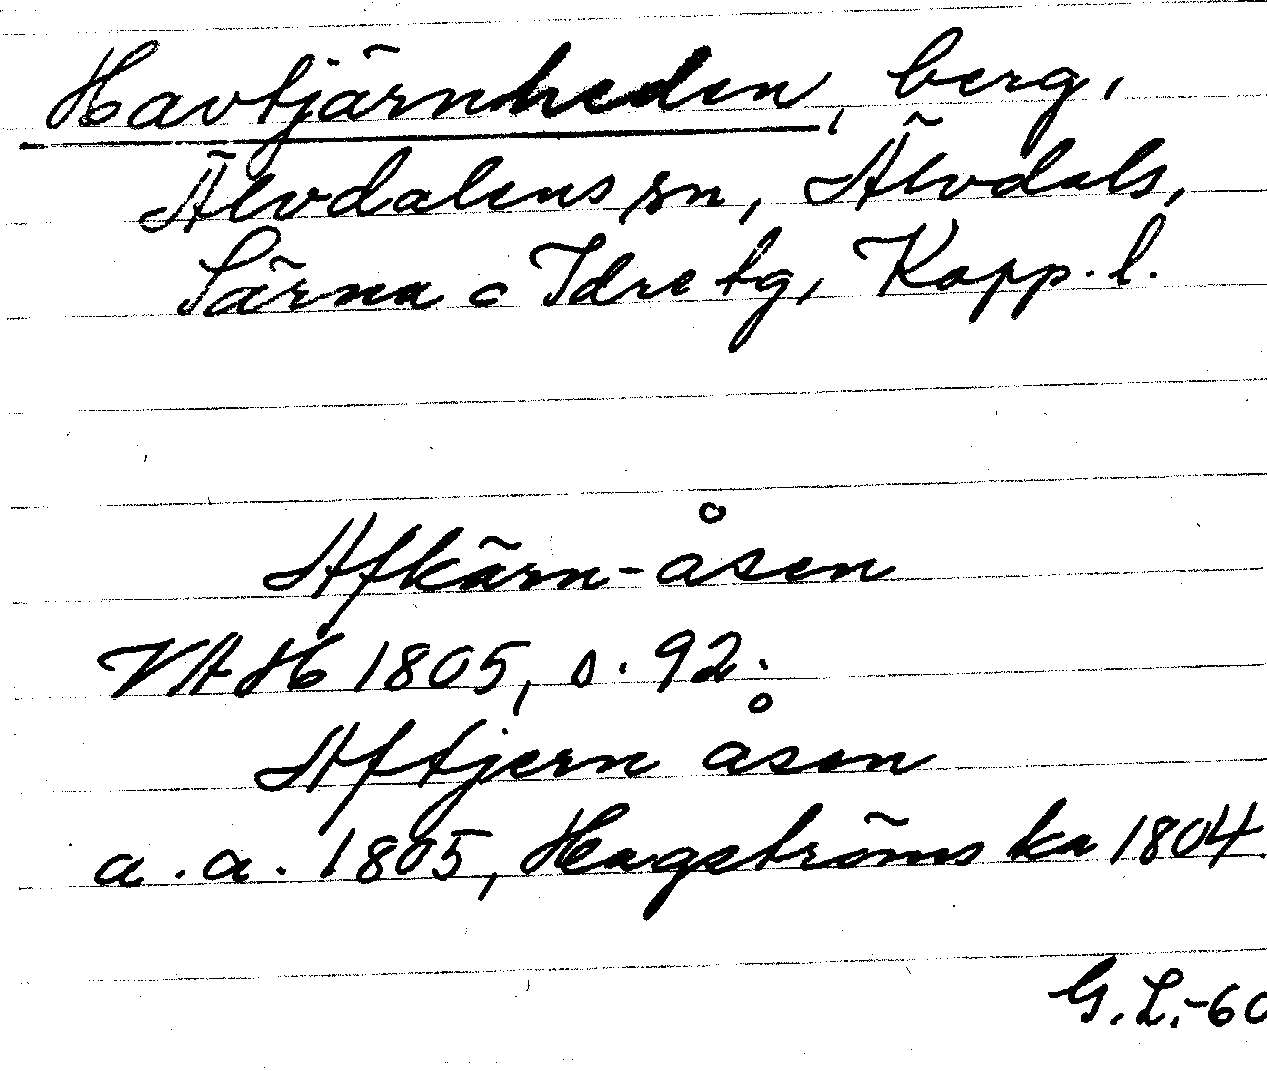 Havtjärnheden, berg,
Älvdalens sn, Älvdals,
Särna o Idre tg, Kopp. l.
Afkärn-åsen
VAH 1805, s. 92.
Aftjern åsen
a. a. 1805, Hagströms ka 1804
G. L. -60